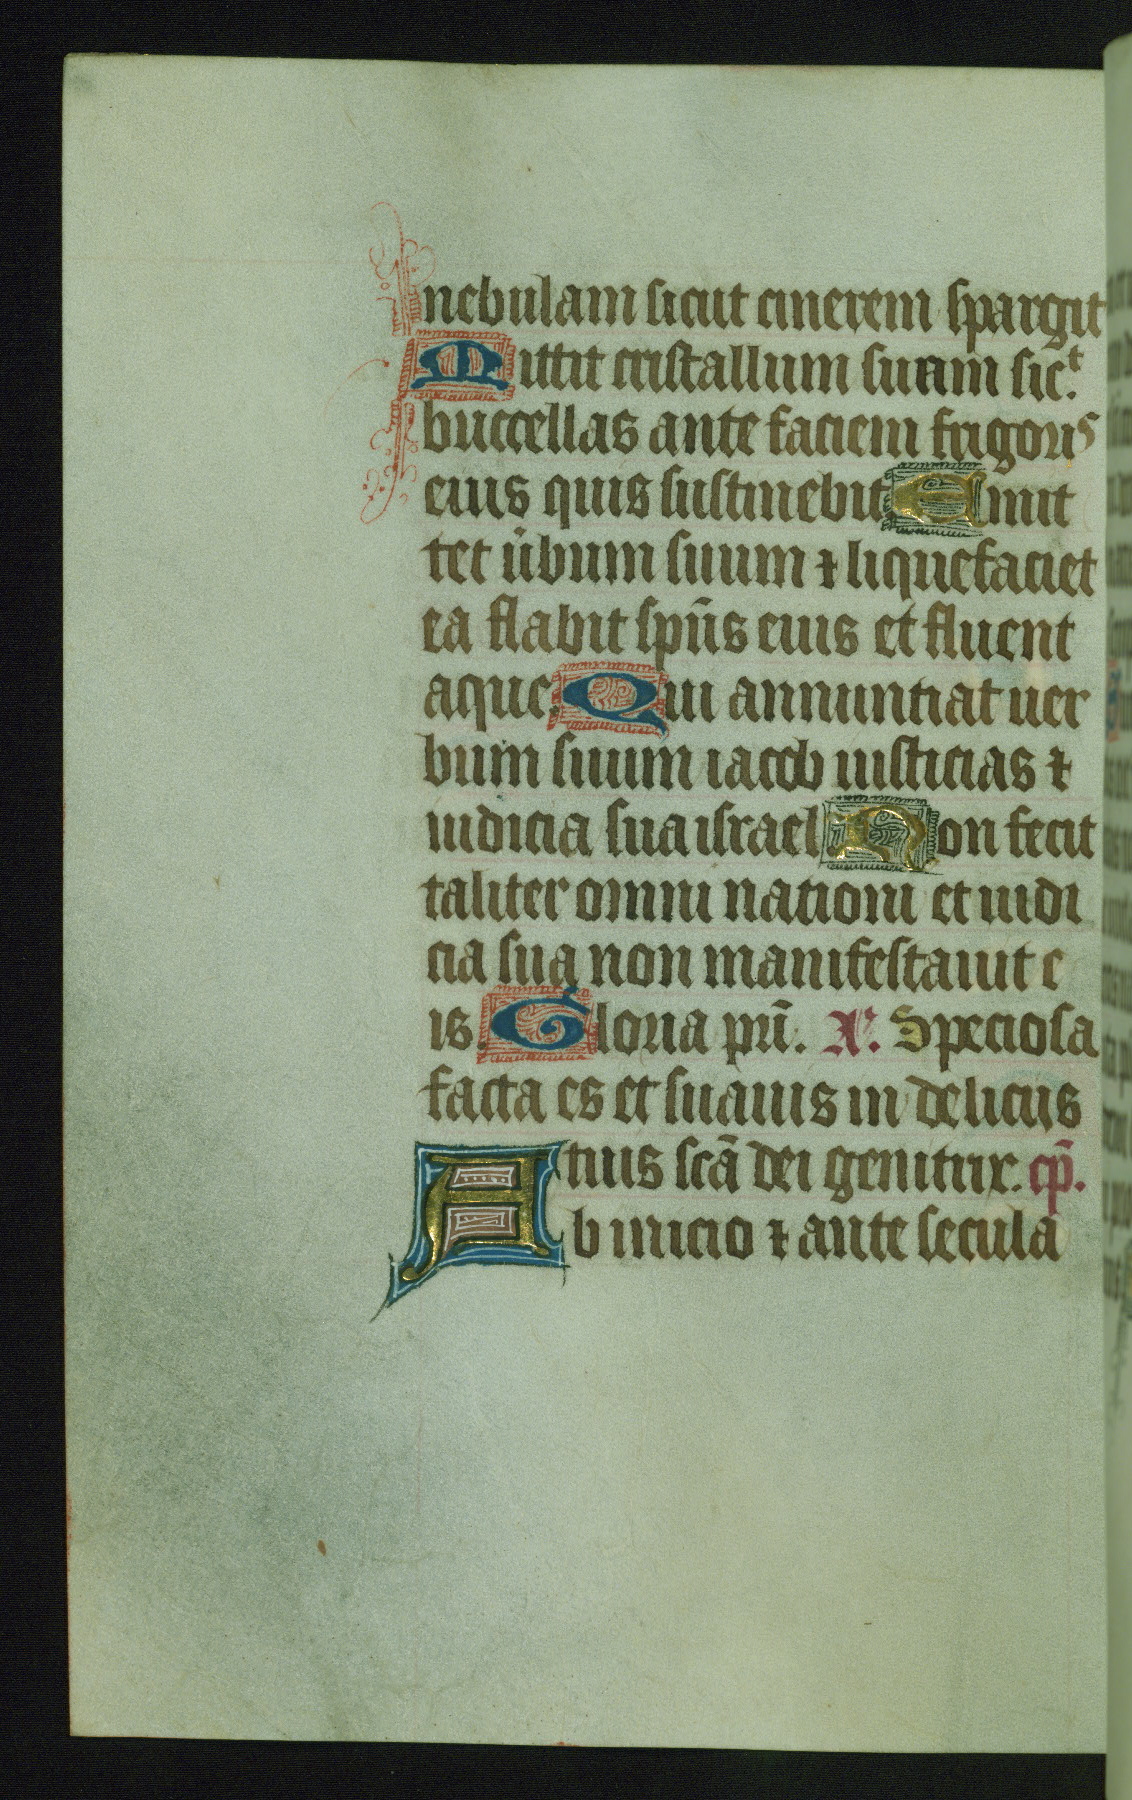 nebulam sicut cinerem spargit
Mittit cristallum suam sic.ᵗ
buccellas ante faciem frigoris
eius quis sustinebit Emit
tet u̇bum suum ⁊ liquefaciet
ea flabit sp̄us eius et fluent
aque. Qui annuntiat uer
bum suum iacob iusticias ⁊
iudicia sua israel. Non fecit
taliter omni nationi et iudi
cia sua non manifestauit e
is. Gloria pr̄i. A⁊. Speciosa
facta es et suauis in delicijs
tuis sc̄a dei genitrix. cp̄.
Ab inicio ⁊ ante secula